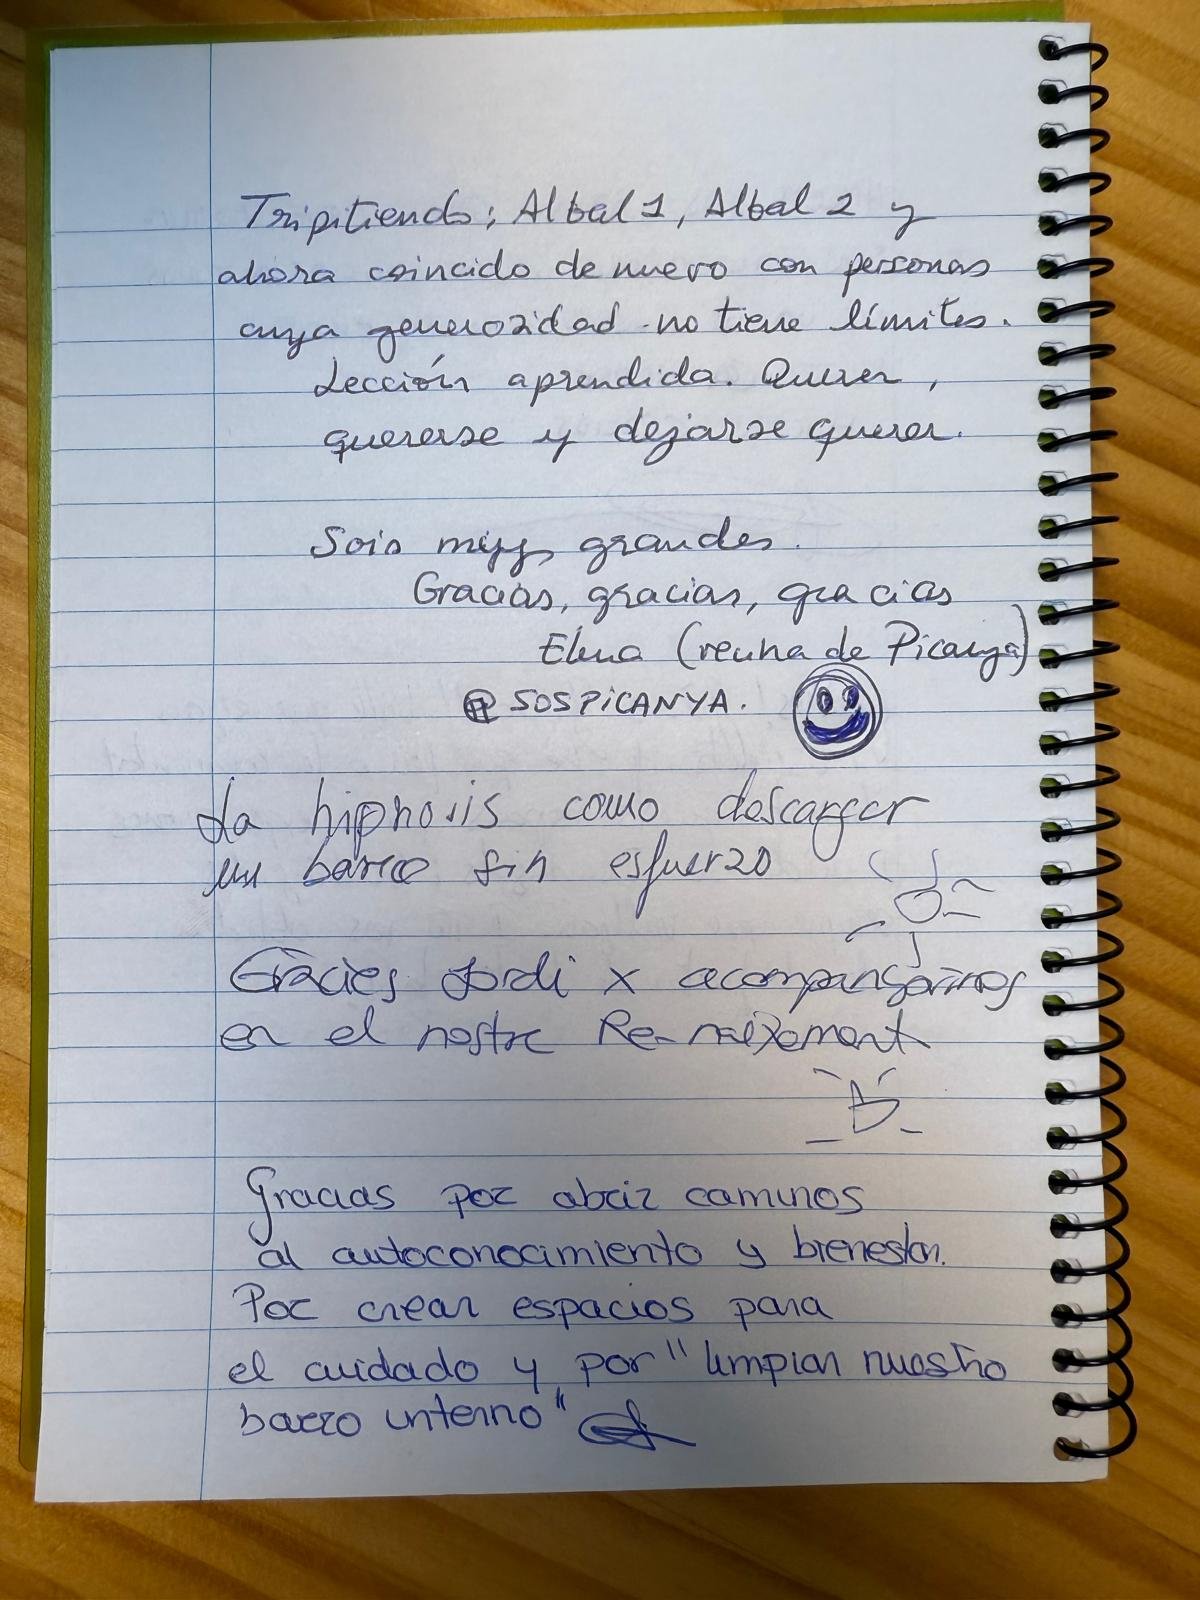 Tripitiendo; Albal 1, Albal 2 y
ahora coincido de nuevo con personas
cuya generosidad no tiene límites.
Lección aprendida. Querer,
quererse y dejarse querer.
Sois muy grandes.
Gracias, gracias, gracias
Elena (reina de Picanya)
@SOSPICANYA.
La hipnosis como descargar
un barco sin esfuerzo
Gràcies Jordi x acompanyarnos
en el nostre Re-naixement
Gracias por abrir caminos
al autoconocimiento y bienestar.
Por crear espacios para
el cuidado y por "limpiar nuestro
barro interno"